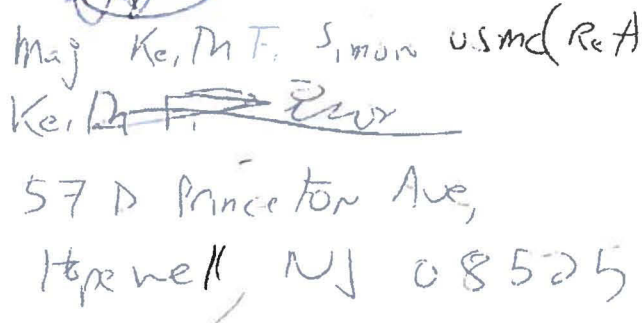 Maj Keith F. Simon USMC (Ret)
Keith F.
57 D Princeton Ave,
Hopewell, NJ 08525